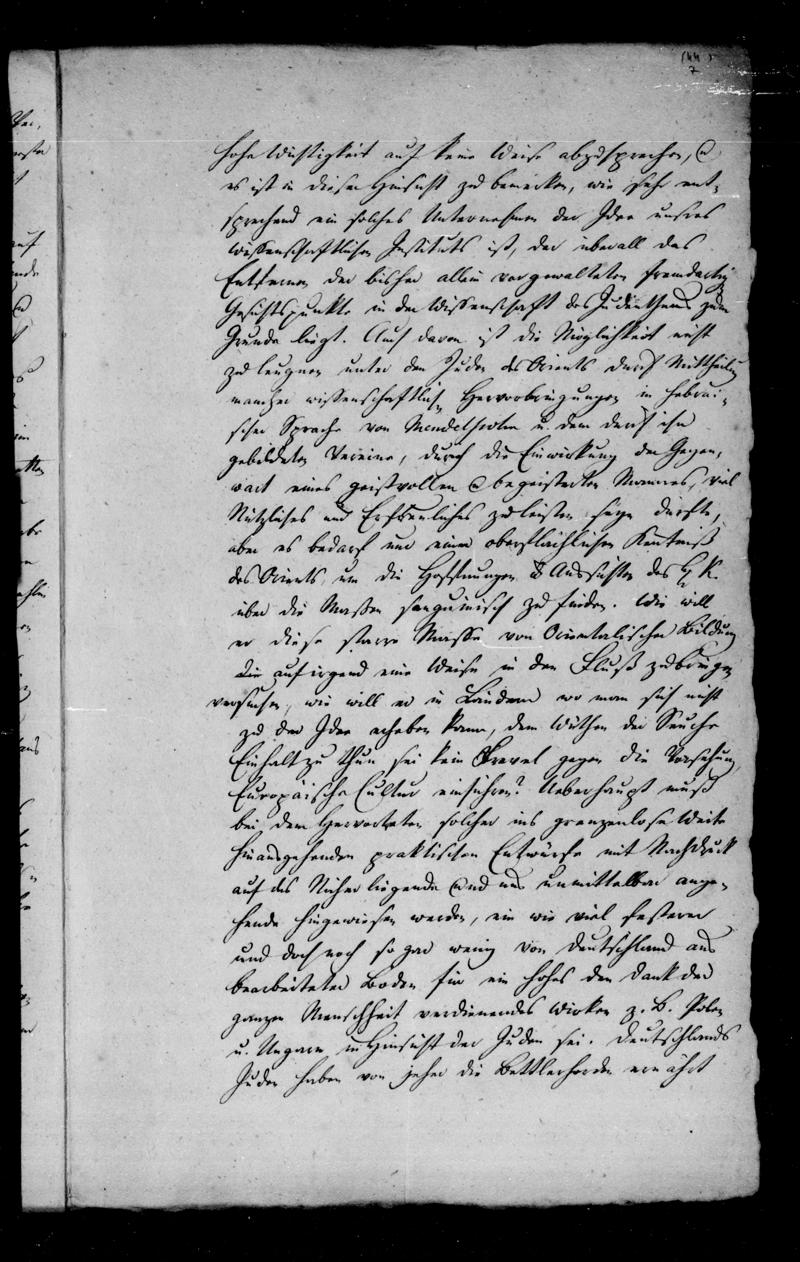 hohe Wichtigkeit auf keine Weise abzusprechen, u
es ist in dieser Hinsicht zu bemerken, wie sehr ent-
sprechend ein solches Unternehmen der Idee unsres
wissenschaftlichen Instituts ist, der überall das
Entfernen der bisher allein vorgewalteten fremdartig
Gesichtspunkte in der Wissenschaft des Judenthums zum
Grunde liegt. Auch davon ist die Möglichkeit nicht
zu leugnen unter den Juden des Orients durch Mittheilung
mancher wissenschaftlich Hervorbringungen in hebräi-
scher Sprache von Mendelssohn u. dem durch ihn
gebildeten Vereine, durch die Einwirkung der Gegen-
wart eines geistvollen u begeisterten Mannes, viel
Nützliches und Erfreuliches zu leisten seyn dürfte,
aber es bedarf nur einer oberflächlichen Kentniß
des Orients um die Hoffnungen u Aussichten des H K.
über die Maßen sanguinisch zu finden. Wie will
er diese starre Masse von Orientalischer Bildung
die auf irgend eine Weise in den Fluß zu bringen
versuchen, wie will er in Ländern wo man sich nicht
zu der Idee erheben kann, dem Wüthen der Seuche
Einhalt zu thun sei kein Frevel gegen die Vorsehung,
Europäische Cultur einführen? Ueberhaupt muß
bei dem Hervortreten solcher ins grenzenlose Weite
hinausgehenden praktischen Entwürfe mit Nachdruck
auf das Näher liegende und uns unmittelbar ange-
hende hingewiesen werden, ein wie viel festerer
und doch noch so gar wenig von Deutschland aus
bearbeiteter Boden für ein hohes den Dank der
ganzen Menschheit verdienendes Wirken z. B. Polen
u. Ungarn in Hinsicht der Juden sei. Deutschlands
Juden haben von jeher die Bettlerhorden ernährt